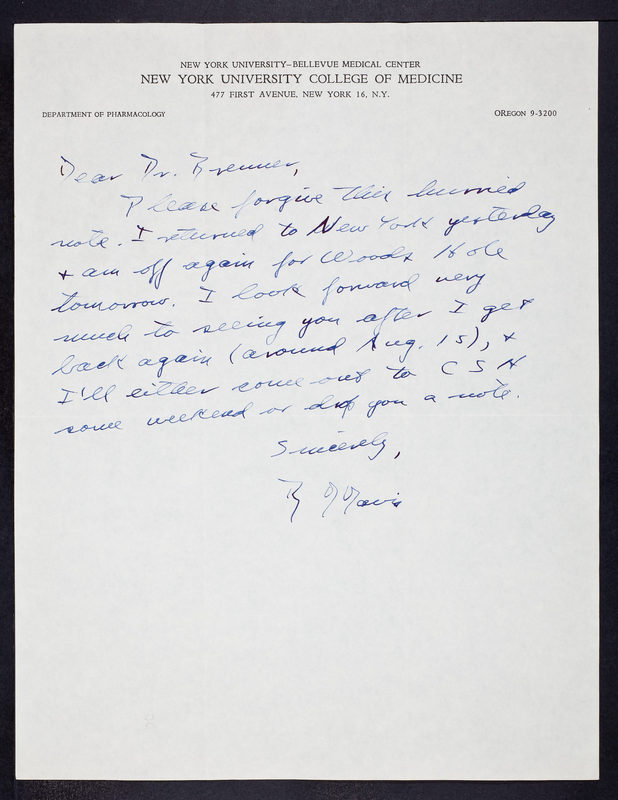 NEW YORK UNIVERSITY–BELLEVUE MEDICAL CENTER
NEW YORK UNIVERSITY COLLEGE OF MEDICINE
477 FIRST AVENUE, NEW YORK 16, N.Y.
DEPARTMENT OF PHARMACOLOGY
OREGON 9-3200
Dear Dr. Brenner,
Please forgive this hurried
note. I returned to New York yesterday
+ am off again for Woods Hole
tomorrow. I look forward very
much to seeing you after I get
back again (around Aug. 15), +
I'll either come out to CSH
some weekend or drop you a note.
Sincerely,
Davis